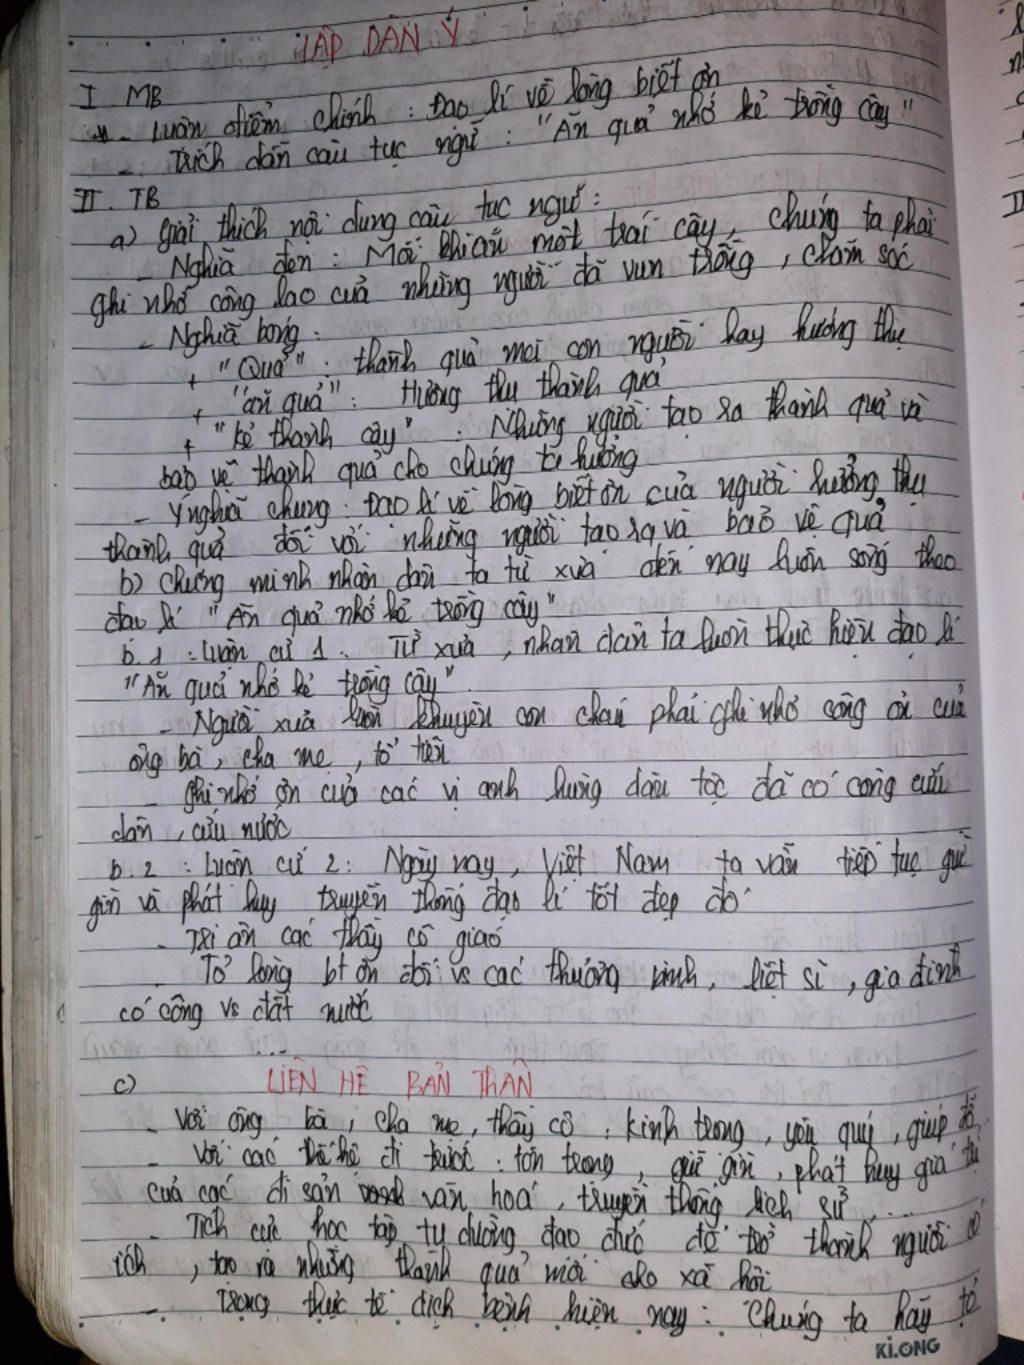 LẬP DÀN Ý
I MB
- Luận điểm chính : Đạo lí về lòng biết ơn
- Trích dẫn câu tục ngữ : "Ăn quả nhớ kẻ trồng cây"
II. TB
a) Giải thích nội dung câu tục ngữ :
- Nghĩa đen : Mỗi khi ăn một trái cây, chúng ta phải
ghi nhớ công lao của những người đã vun trồng , chăm sóc
- Nghĩa bóng :
+ "Quả" : thành quả mọi con người hay hưởng thụ
+ "ăn quả" : Hưởng thụ thành quả
+ "kẻ thành cây" : Những người tạo ra thành quả và
bảo vệ thành quả cho chúng ta hưởng
- Ý nghĩa chung : Đạo lí về lòng biết ơn của người hưởng thụ
thành quả đối với những người tạo ra và bảo vệ quả
b) Chứng minh nhân dân ta từ xưa đến nay luôn sống theo
đạo lí "Ăn quả nhớ kẻ trồng cây"
b.1 : Luận cứ 1. Từ xưa , nhân dân ta luôn thực hiện đạo lí
"Ăn quả nhớ kẻ trồng cây"
- Người xưa luôn khuyên con cháu phải ghi nhớ công ơn của
ông bà, cha mẹ , tổ tiên
- Ghi nhớ ơn của các vị anh hùng dân tộc đã có công cứu
dân , cứu nước
b.2 : Luận cứ 2 : Ngày nay, Việt Nam ta vẫn tiếp tục giữ
gìn và phát huy truyền thống đạo lí tốt đẹp đó
- Tri ân các thầy cô giáo
Tỏ lòng bt ơn đối vs các thương binh, liệt sĩ , gia đình
có công vs đất nước
...
c) LIÊN HỆ BẢN THÂN
- Với ông bà, cha mẹ, thầy cô : kính trọng , yêu quý , giúp đỡ...
- Với các thế hệ đi trước : tôn trọng , giữ gìn , phát huy giá trị
của các di sản văn hoá , truyền thống lịch sử ...
- Tích cực học tập tu dưỡng đạo đức để trở thành người có
ích , tạo ra những thành quả mới cho xã hội
- Trong thực tế dịch bệnh hiện nay : Chúng ta hãy tỏ
KI.ONG